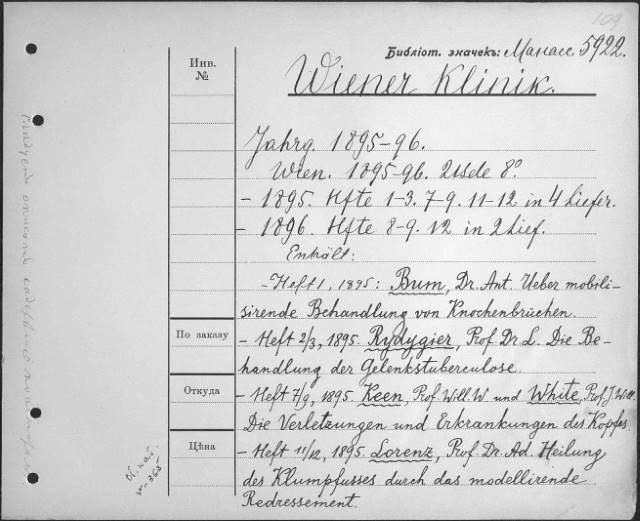 109
Библіот. значекъ: Манасс 5922.
Инв.
№
Wiener Klinik.
Jahrg. 1895-96.
Wien. 1895-96. 2 Bde 8º
- 1895. Hfte 1-3. 7-9. 11-12 in 4 Liefer.
- 1896. Hfte 8-9. 12 in 2 Lief.
Enhält:
- Heft 1, 1895: Bum, Dr. Ant. Ueber mobili-
sirende Behandlung von Knochenbrüchen.
По заказу
- Heft 2/3, 1895. Rydygier, Prof. Dr. L. Die Be-
handlung der Gelenkstuberculose.
Откуда
- Heft 7/9, 1895. Keen, Prof. Will. W. und White, Prof. J. Will.
Die Verletzungen und Erkrankungen des Kopfes
Цѣна
- Heft 11/12, 1895. Lorenz, Prof. Dr. Ad. Heilung
des Klumpfusses durch das modellirende
Redressement.